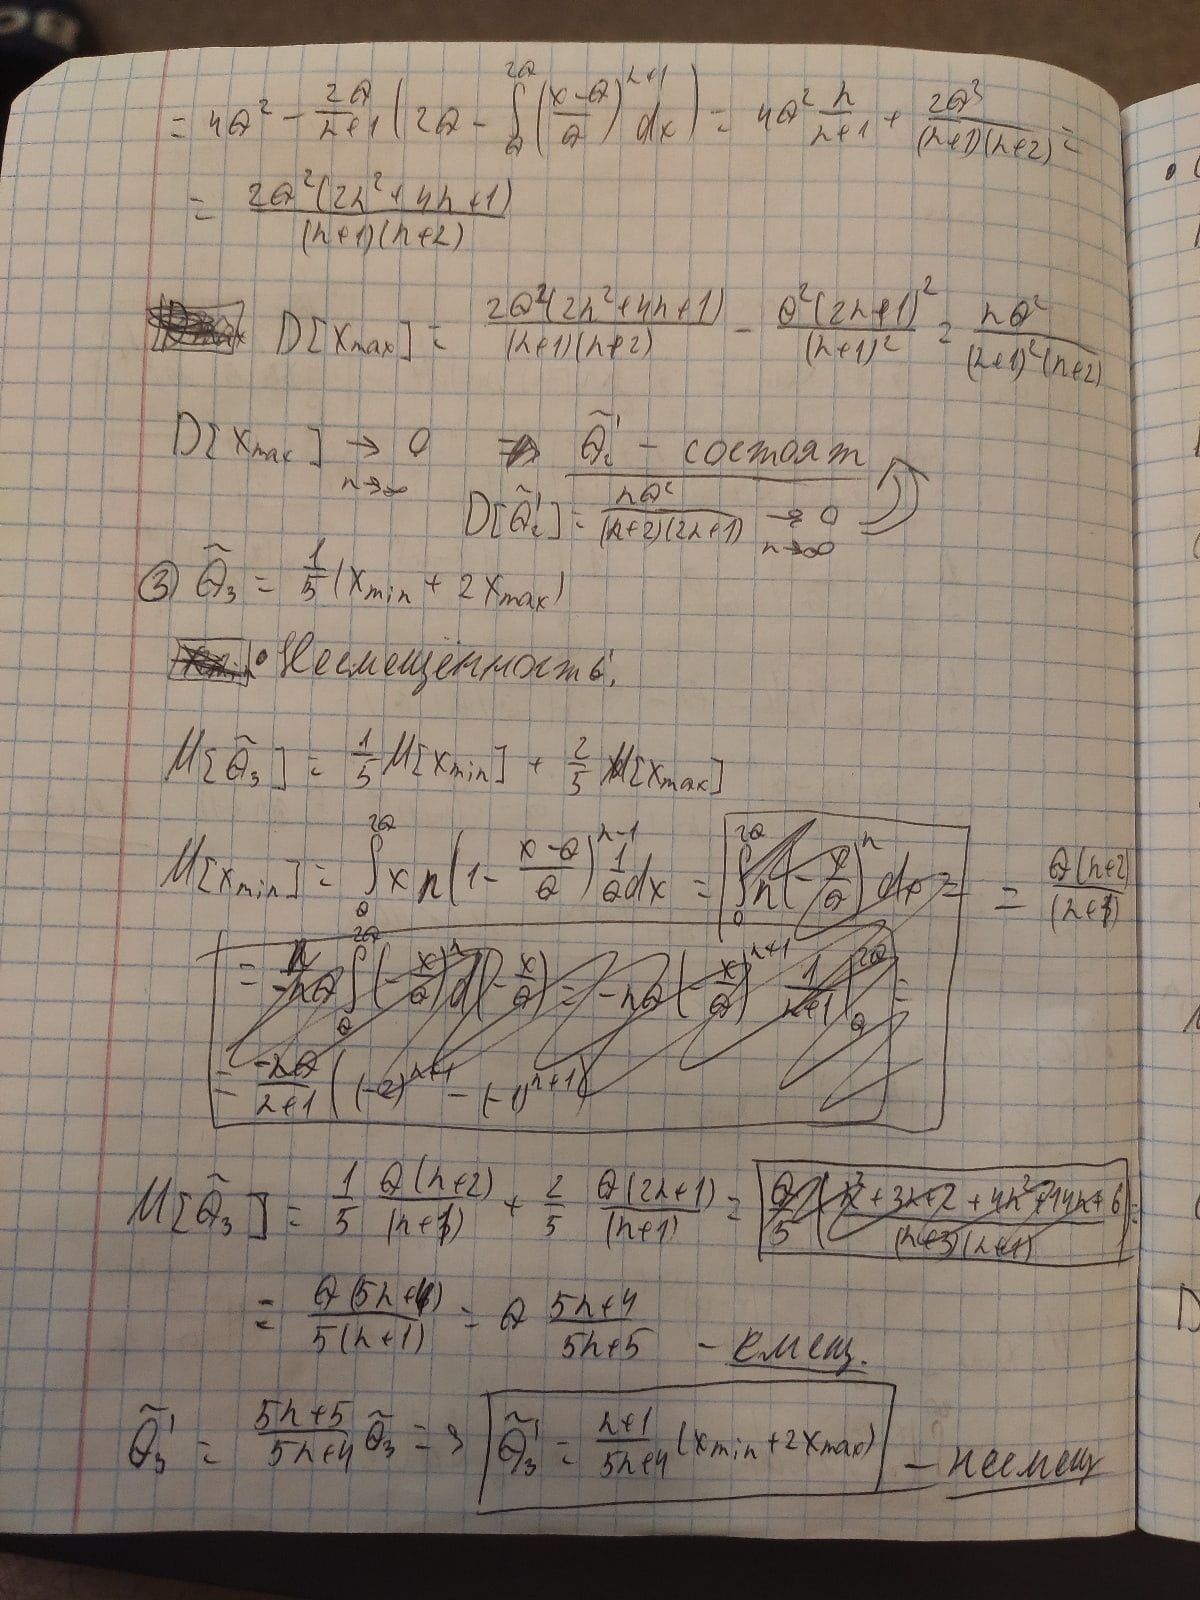 = 4Q² - 2Q/(n+1) (2Q - ∫_Q^{2Q} ((x-Q)/Q)^{n+1} dx) = 4Q² n/(n+1) + 2Q³/((n+1)(n+2)) =
= 2Q²(2n²+4n+1)/((n+1)(n+2))
D[xmax] = 2Q²(2n²+4n+1)/((n+1)(n+2)) - Q²(2n+1)²/(n+1)² = nQ²/((n+1)²(n+2))
D[xmax] →_{n→∞} 0 ⇒ Q̃₂' - состоят
D[Q̃₂'] = nQ²/((n+2)(2n+1)) →_{n→∞} 0
③ Q̃₃ = 1/5 (xmin + 2xmax)
• Несмещённость:
M[Q̃₃] = 1/5 M[xmin] + 2/5 M[xmax]
M[xmin] = ∫_Q^{2Q} x n (1 - (x-Q)/Q)^{n-1} 1/Q dx = ∫_Q^{2Q} n (-x/Q)^n dx = = Q(n+2)/(n+1)
= -nQ ∫_Q^{2Q} (-x/Q)^n d(-x/Q) = -nQ (-x/Q)^{n+1} 1/(n+1) |_Q^{2Q} =
= -nQ/(n+1) ((-2)^{n+1} - (-1)^{n+1})
M[Q̃₃] = 1/5 Q(n+2)/(n+1) + 2/5 Q(2n+1)/(n+1) = Q/5 (n²+3n+2+4n²+14n+6)/((n+3)(n+1)) =
= Q(5n+4)/(5(n+1)) = Q (5n+4)/(5n+5) - смещ.
Q̃₃' = (5n+5)/(5n+4) Q̃₃ => Q̃₃' = (n+1)/(5n+4) (xmin+2xmax) - несмещ